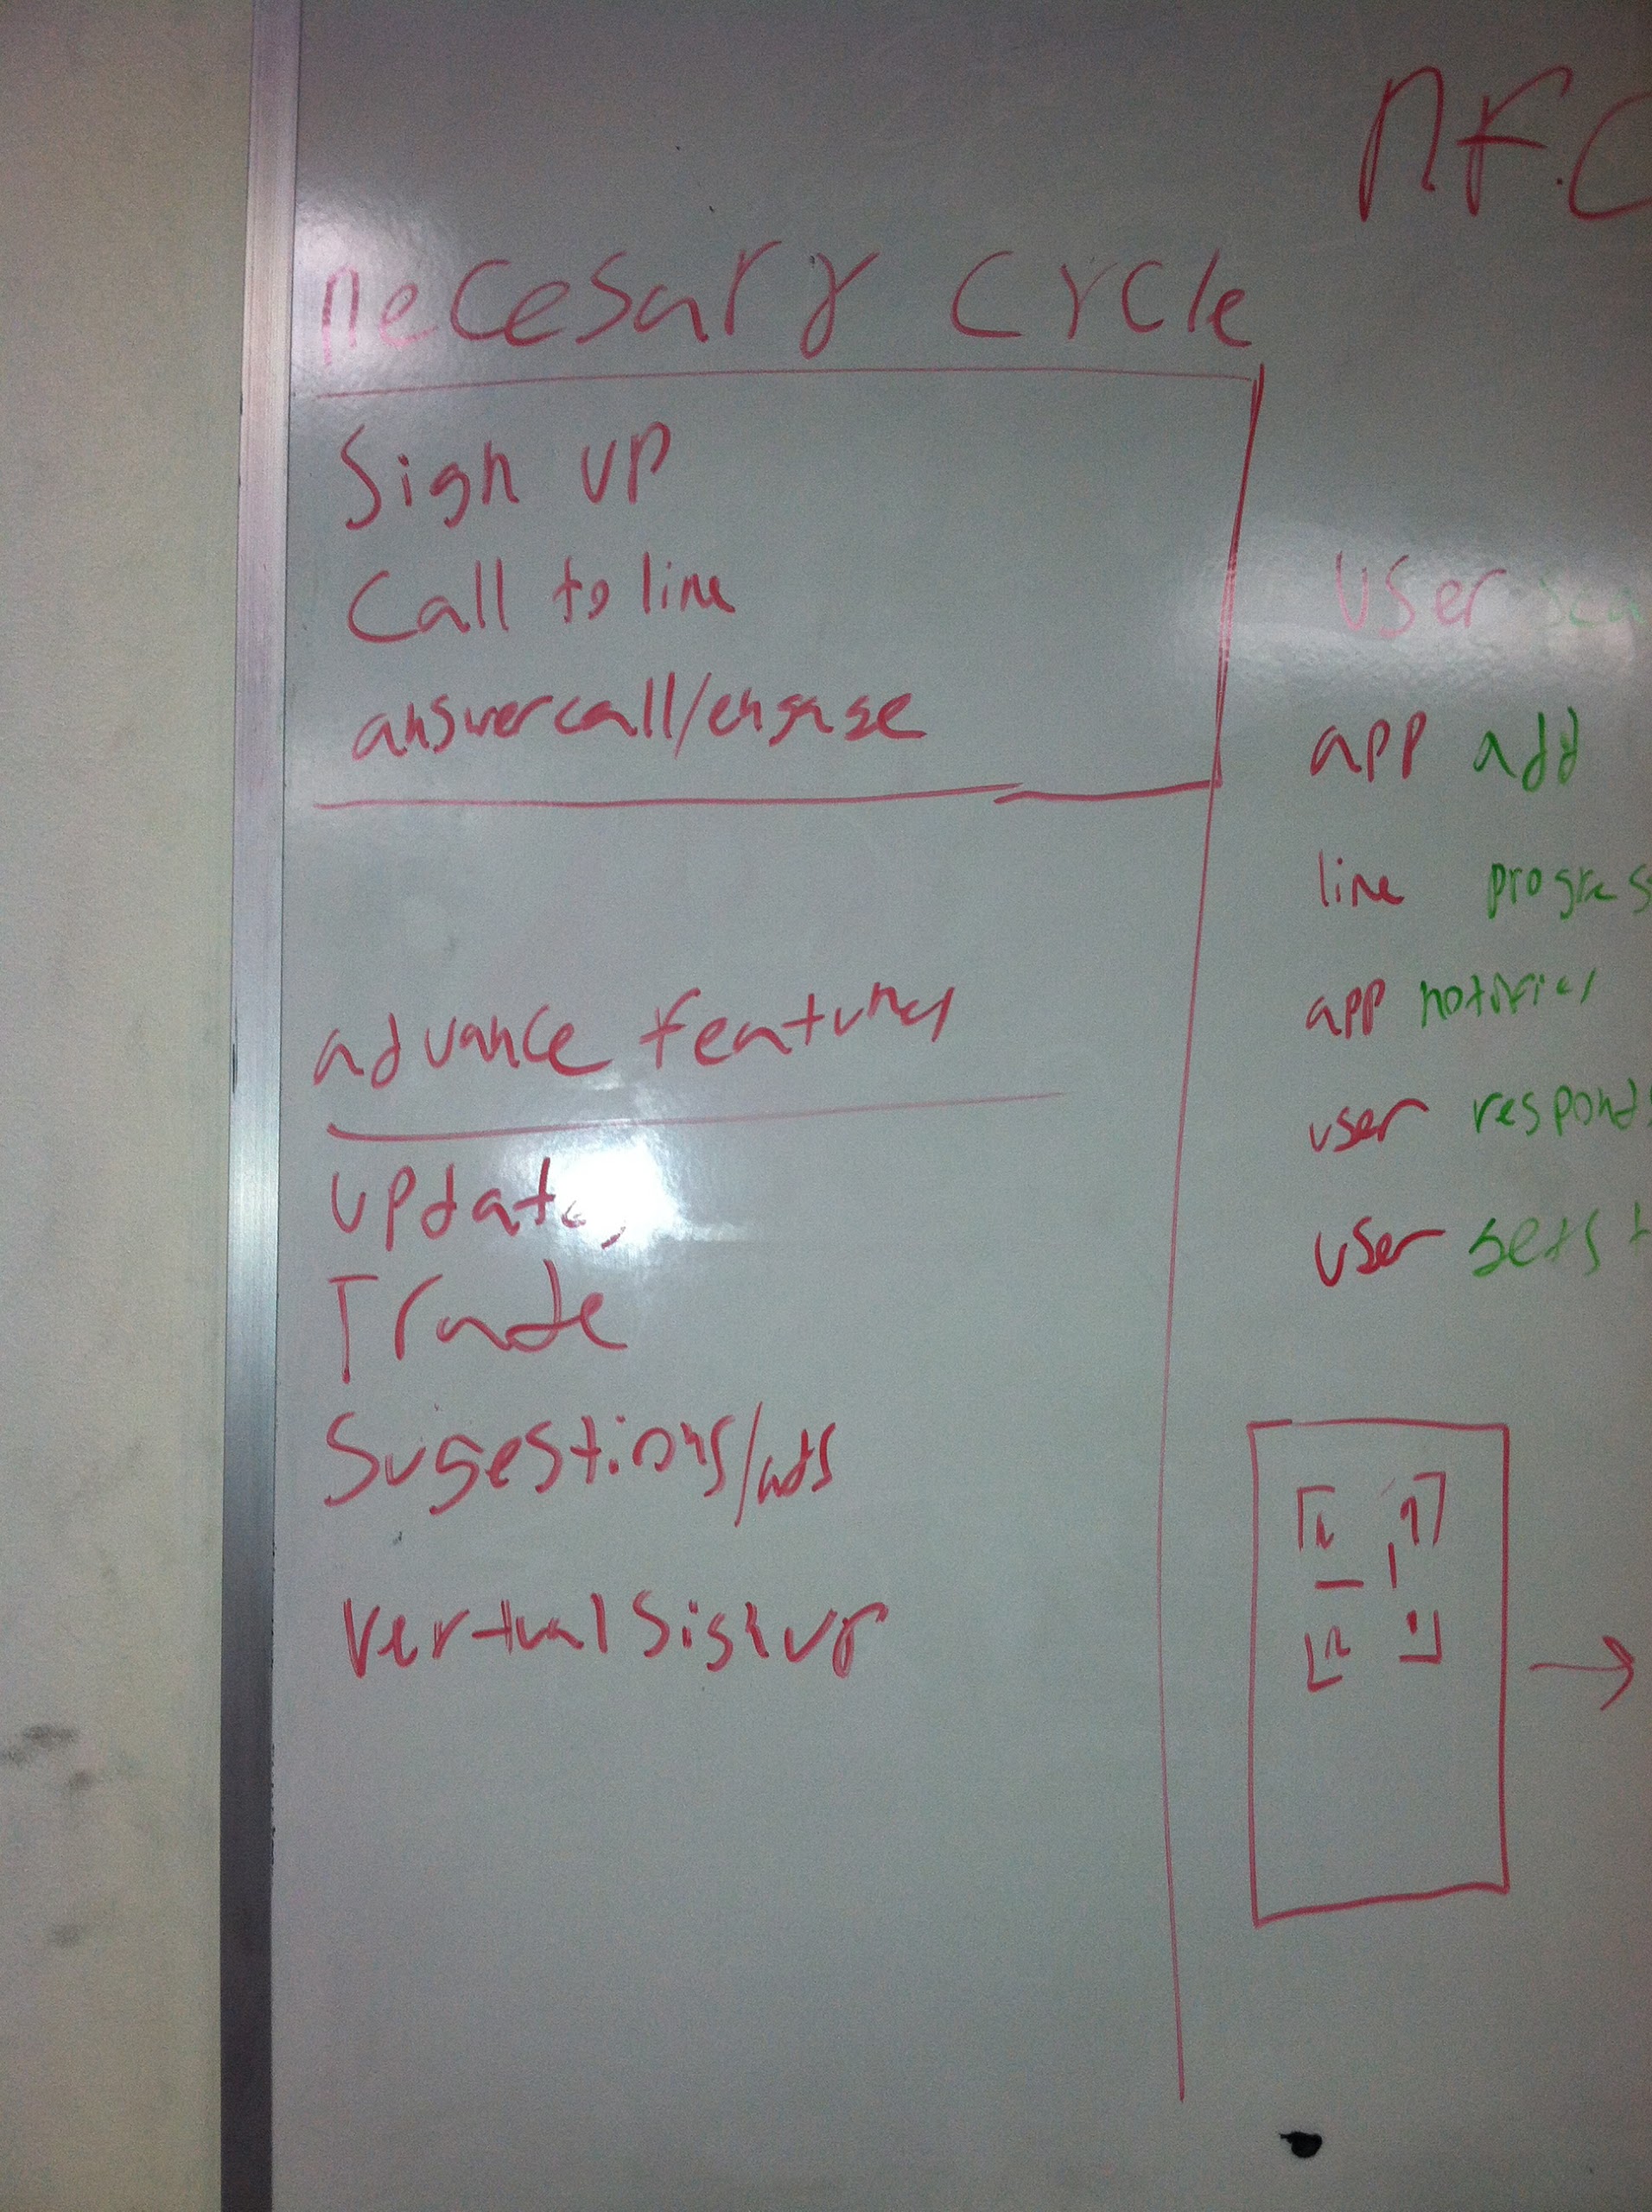 necesary cycle
Sign up
Call to line
answer call/engage
advance features
updates
Trade
Sugestions/ads
vertual Signup
NFC
user sca
app add
line progress
app notifies
user responds
user sets t